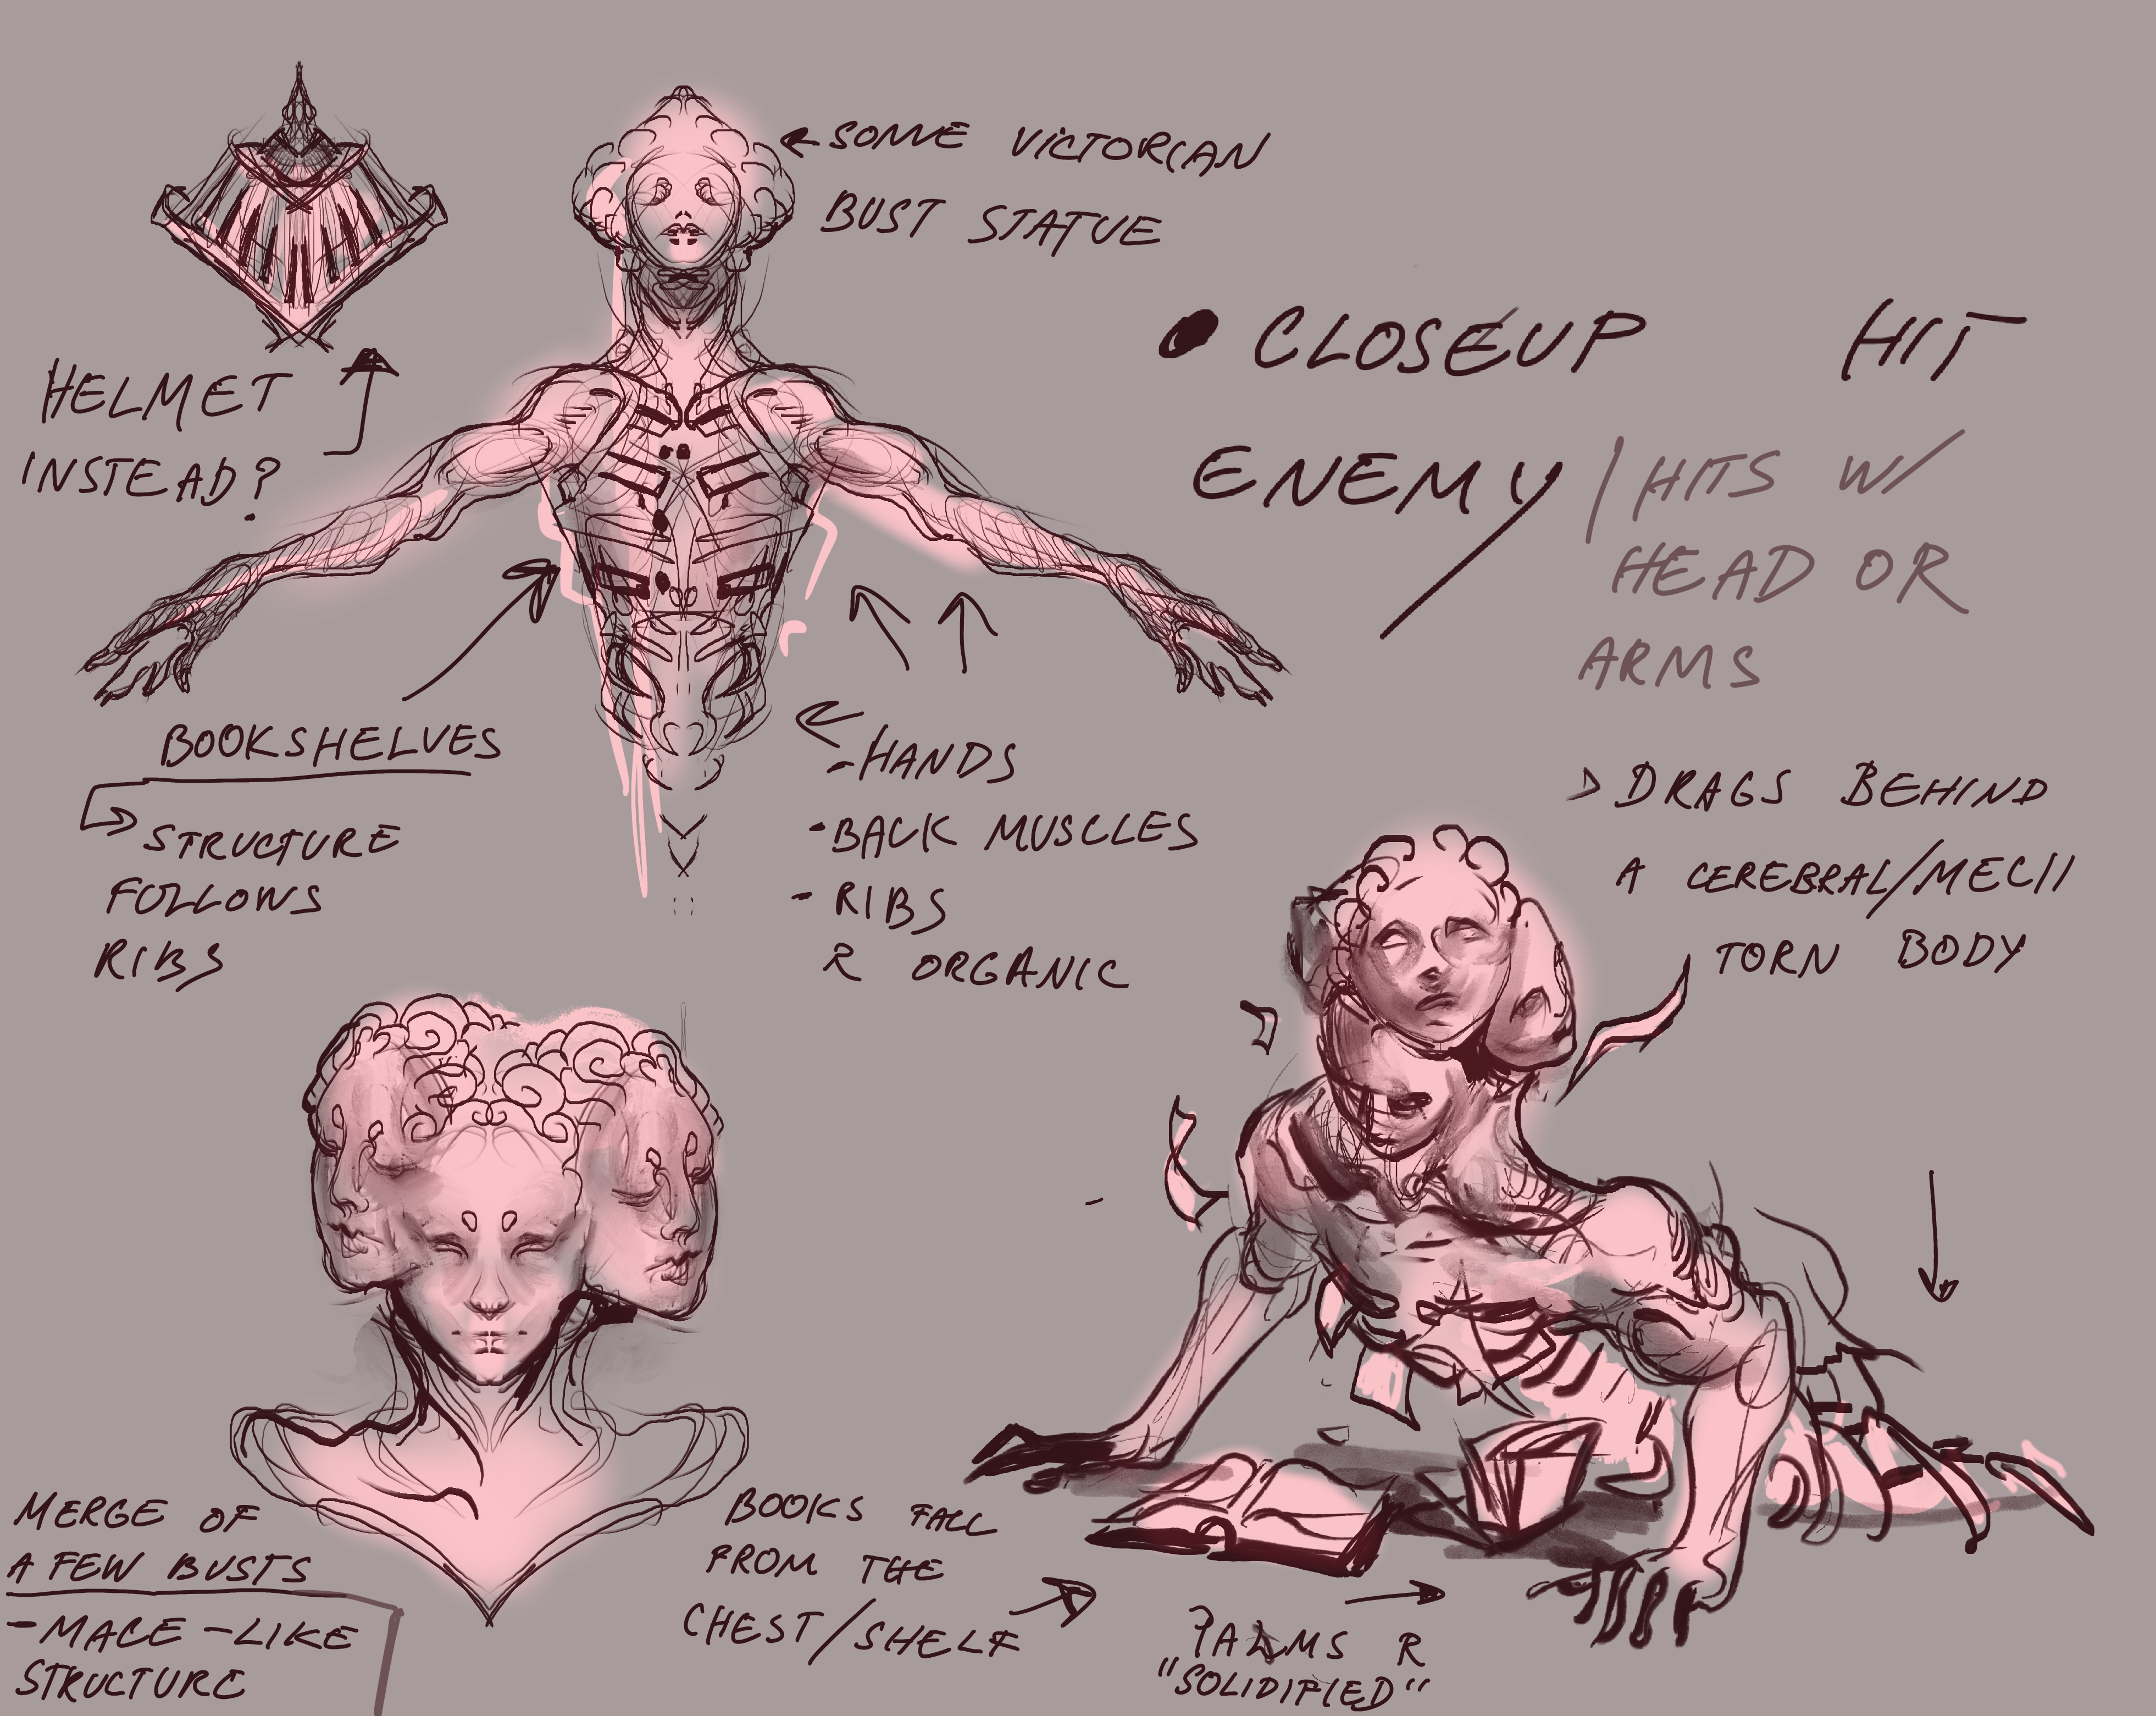 ← SOME VICTORIAN
BUST STATUE
HELMET
INSTEAD?
• CLOSEUP HIT
ENEMY / HITS W/
HEAD OR
ARMS
BOOKSHELVES
STRUCTURE
FOLLOWS
RIBS
- HANDS
- BACK MUSCLES
- RIBS
R ORGANIC
> DRAGS BEHIND
A CEREBRAL/MECH
TORN BODY
MERGE OF
A FEW BUSTS
- MACE-LIKE
STRUCTURE
BOOKS FALL
FROM THE
CHEST/SHELF
PALMS R
"SOLIDIFIED"